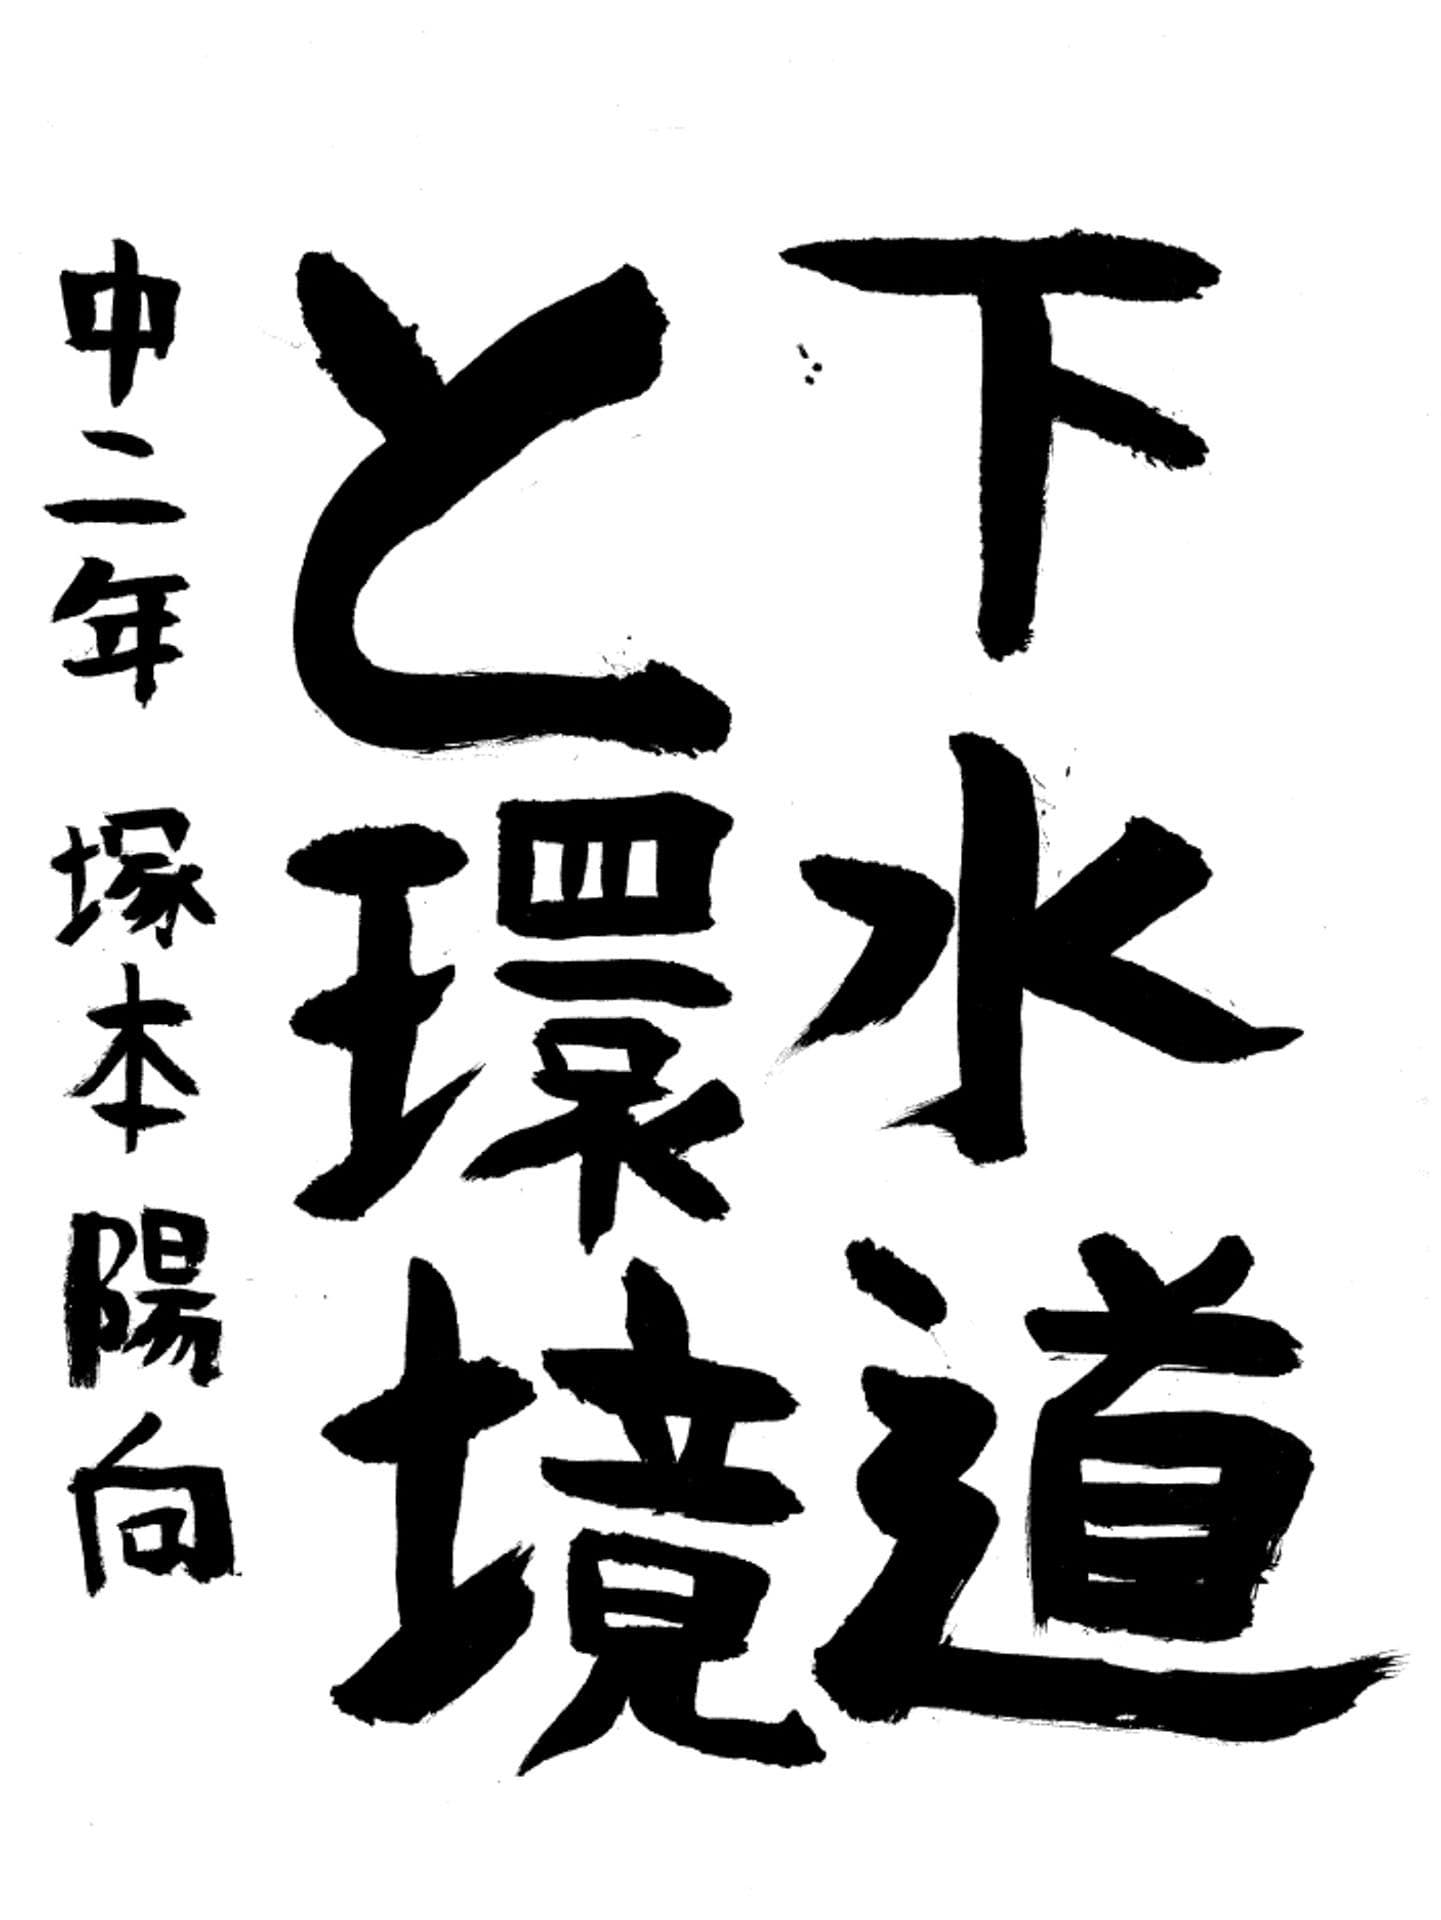 下水道
と環境
中二年 塚本陽向